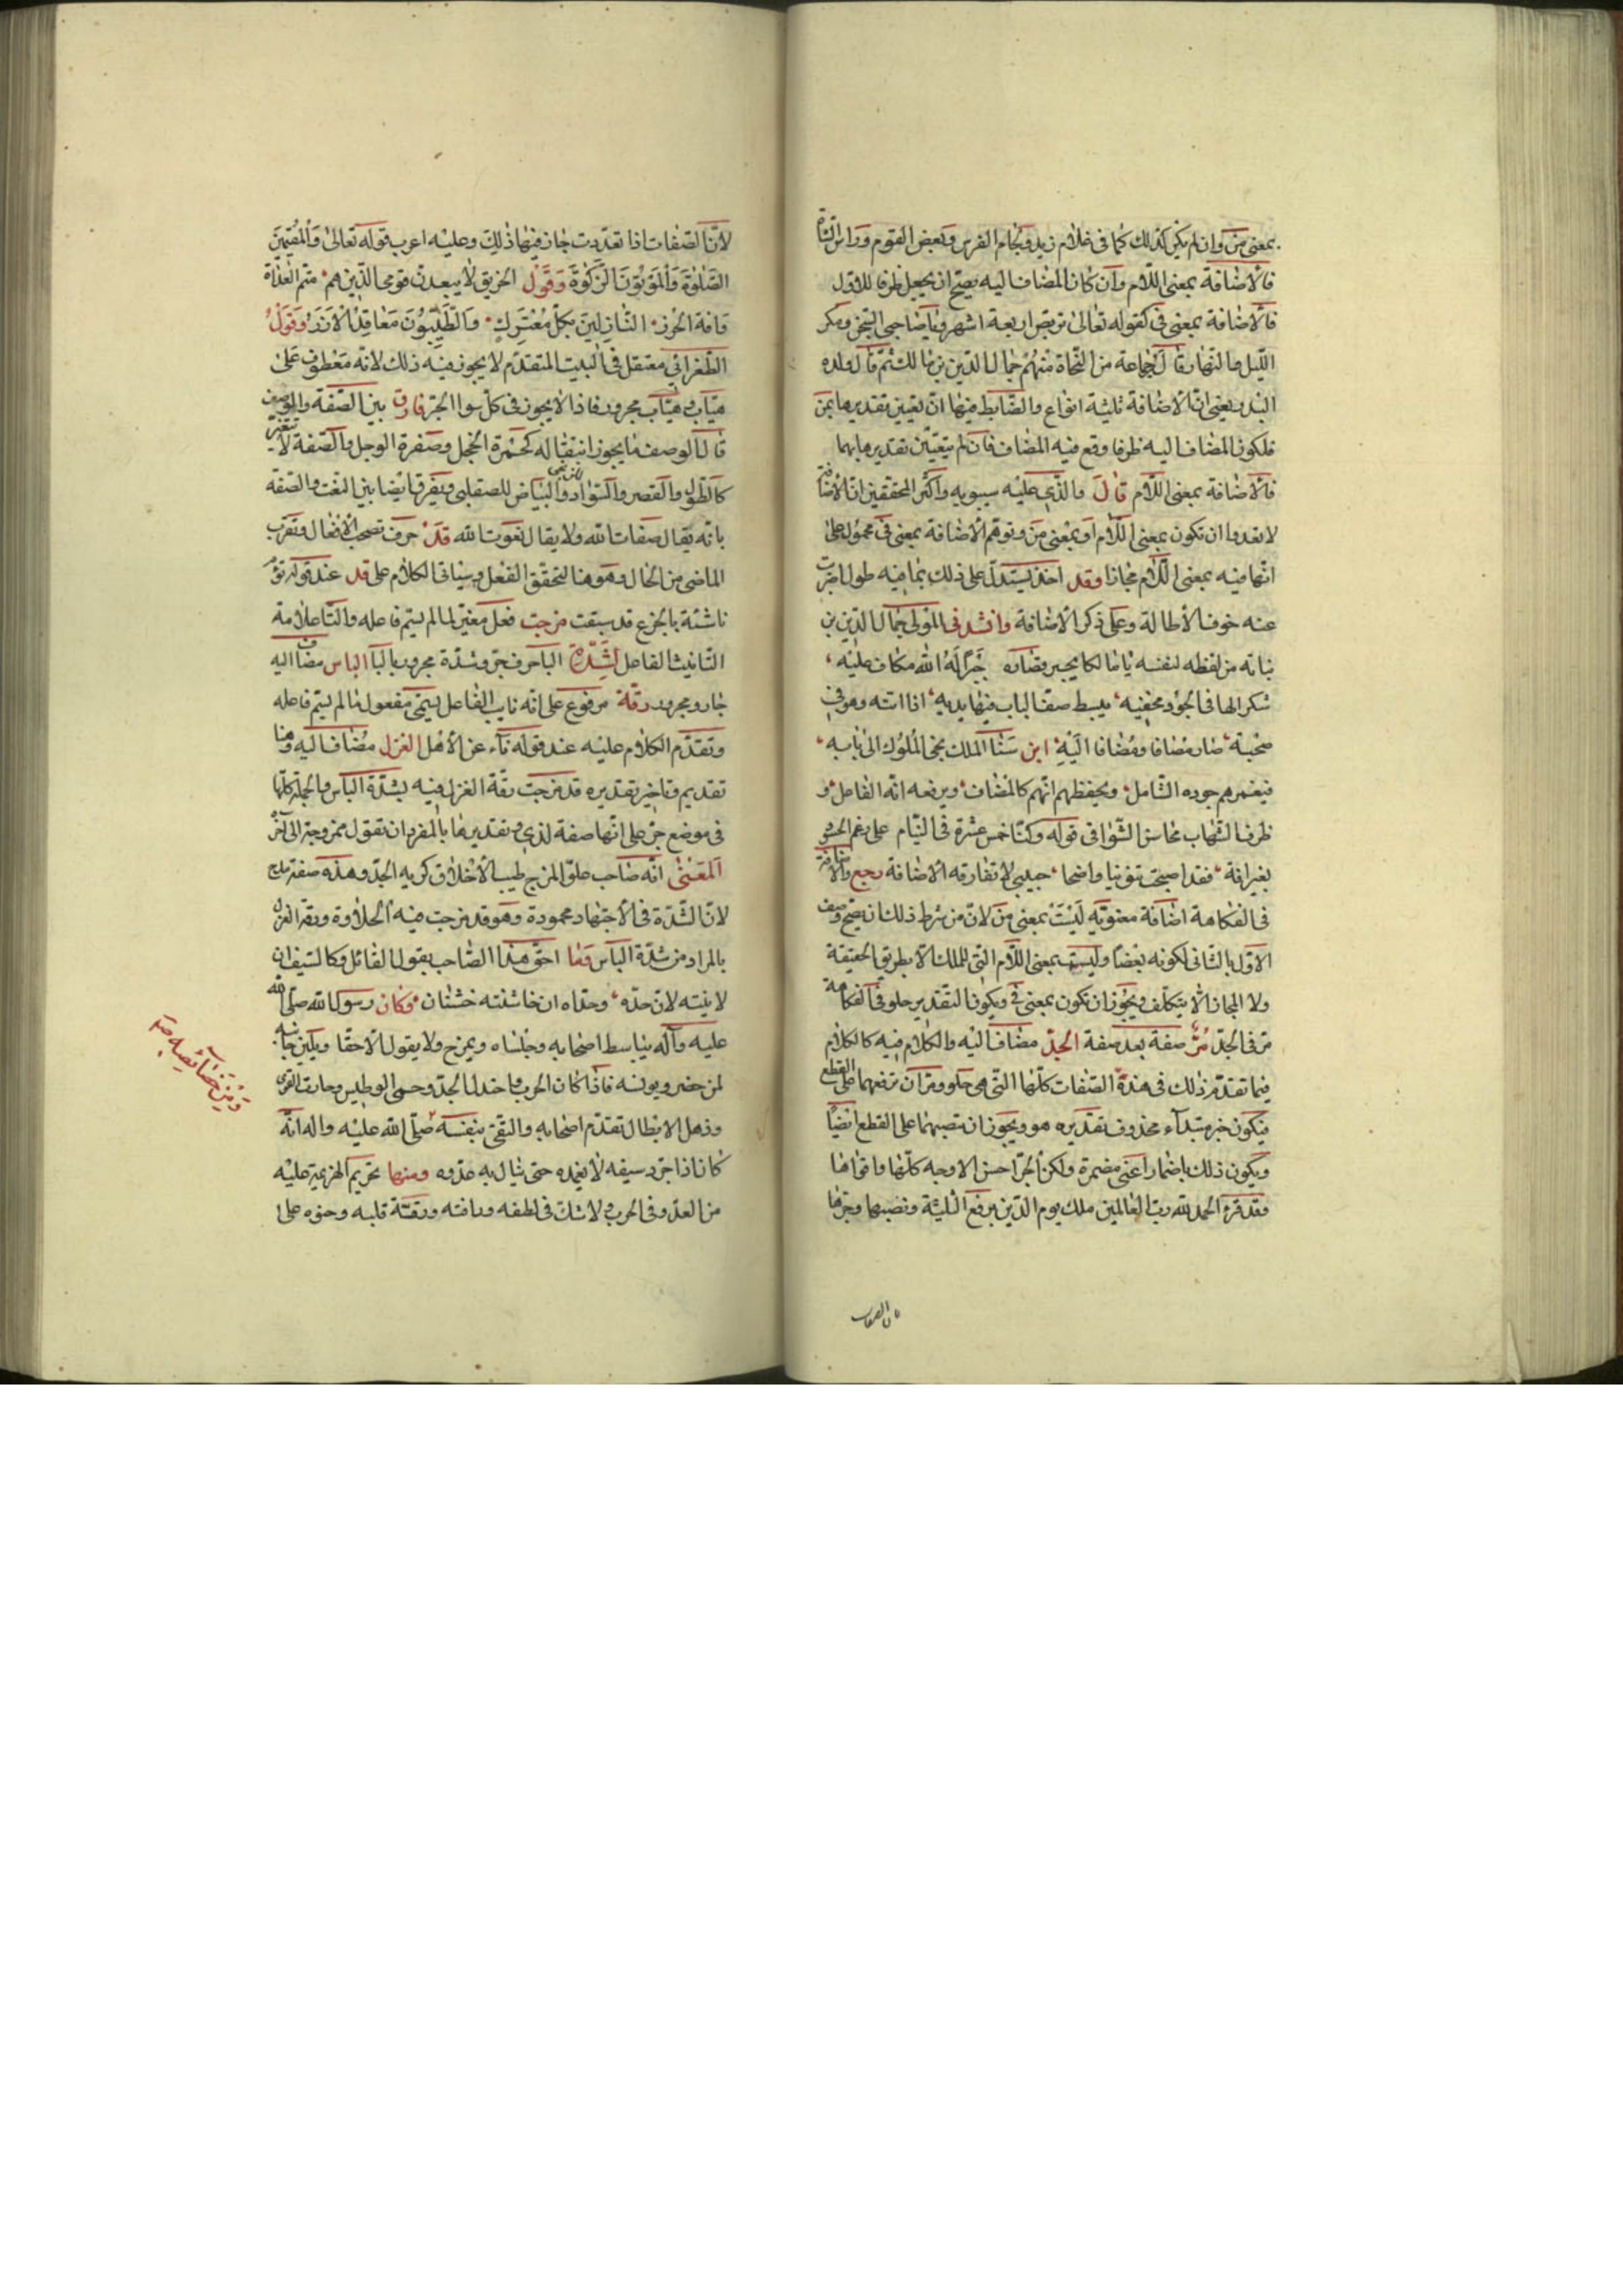 بمعنى من وان لم يكن كذلك كما فى غلام زيد ولجام الفرس وبعض القوم وراس الشاة
فالاضافة بمعنى اللام وان كان المضاف اليه يصح ان يجعل ظرفا للاول
فالاضافة بمعنى فى كقوله تعالى تربص اربعة اشهر ويا صاحبى السجن ومكر
الليل والنهار قال جماعة من النحاة منهم جمال الدين بن مالك ثم قال ولده
البدر يعنى ان الاضافة ثلثة انواع والضابط فيها ان تعيين تقديرها بمن
فلكون المضاف اليه ظرفا وقع فيه المضاف فان لم يتعين تقديرها بهما
فالاضافة بمعنى اللام قال والذى عليه سيبويه واكثر المحققين ان الاضافة
لا تعدوا ان تكون بمعنى اللام او بمعنى من وتوهم الاضافة بمعنى فى محمول على
انها فيه بمعنى اللام مجازا وقد اخذ يستدل على ذلك بما فيه طول اضربت
عنه خوف الاطالة وعلى ذكر الاضافة وانشدنى المولى جمال الدين بن
نباته من لفظه لنفسه
شكر الها فى الجود محفيه يبسط صفا لباب فيها يديه اذا اتته وهو فى
محبسة صار مضافا ومضافا اليه ابن سنا الملك يجى الملوك الى بابه
فيغمرهم جوده الشامل ويحفظهم انهم كالمضاف ويرفعه انه الفاعل و
ظرف الشهاب محاسن الشوا فى قوله وكنا خمس عشرة فى التيام على رغم الحسود
بغير افة فقد اصبحت تنوينا واضحا حبيبى لا تفارقه الاضافة رجع والاضافة
فى الفكاهة اضافة معنوية ليست بمعنى من لان من شرط ذلك ان يصح وصف
الاول بالثانى لكونه بعضا وليست بمعنى اللام التى للملك الا بطريق الحقيقة
ولا المجاز الا يتكلف ويجوز ان تكون بمعنى فى ويكون التقدير حلو فى الفكاهة
مر فى الجد مر صفة بعد صفة الجد مضاف اليه والكلام فيه كالكلام
فيما تقدم ذلك فى هذة الصفات كلها التى هى حلو ومر ان ترفعهما على القطع
فيكون خبر مبتداء محذوف تقديره هو ويجوز ان تنصبهما على القطع ايضا
ويكون ذلك باضمار اعنى مضمرة ولكن الجر احسن الاوجه كلها واقواها
وقد قرء الحمد لله رب العالمين ملك يوم الدين برفع الثلثة ونصبها وجرها
لان الصفات
لان الصفات اذا تعددت جاز فيها ذلك وعليه اعرب قوله تعالى والمقيمين
الصلوة والموتون الزكوة وقول الخرنق لا يبعدن قومى الذين هم سم العداة
وافة الجزر النازلين بكل معترك والطيبون معاقد الازر وقول
الطغرائى معتقل فى البيت المتقدم لا يجوز فيه ذلك لانه معطوف على
هياب وهياب مجرور فاذا لا يجوز فى كل سوا الجر فارق بين الصفة والوصف
قال الوصف ما يجوز انتقاله كحمرة الخجل وصفرة الوجل والصفة لا تتغير
كالطول والقصر والسواد للزنجى والبياض للصقلبى ويفرق ايضا بين النعت والصفة
بانه يقال صفات الله ولا يقال نعوت الله قد حرف تصحب الافعال وتقرب
الماضى من الحال وهو هنا لتحقق الفعل وسياتى الكلام على قد عند قوله تؤم
ناشئة بالجزع قد سقيت مزجت فعل مغير لما لم يسم فاعله والتا علامة
التانيث الفاعل لشدة الباحرف جر وشدة مجرور بالبا الباس مضاف اليه
جار ومجرور رقة مرفوع على انه نايب الفاعل يسمى مفعول ما لم يسم فاعله
وتقدم الكلام عليه عند قوله ناء عن الاهل الغزل مضاف اليه وهنا
تقديم وتاخير تقديره قد مزجت رقة الغزل فيه بشدة الباس والجملة كلها
فى موضع جر على انها صفة لذى وتقديرها بالمفرد ان تقول ممزوجة الى اخره
المعنى انه صاحب حلو المزح طيب الاخلاق كريه الجد وهذه صفة مدح
لان الشدة فى الاجتهاد محمودة وهو قد مزجت فيه الحلاوة ورقة الغزل
بالمراد من شدة الباس وما احق هذا الصاحب بقول القائل وكالسيف ان
لاينته لان حده وحداه ان خاشنته خشنان وكان رسول الله صلى الله
عليه واله يباسط اصحابه وجلساه ويمزح ولا يقول الا حقا ويلين جانبه
لمن حضر ويونسه فاذا كان الحرب واخذ الجد وحمى الوطيس وحارت القرى
وذهل الابطال تقدم اصحابه والتقى بنفسه صلى الله عليه واله انه
كان اذا جرد سيفه لا يغمده حتى ينال به عدوه ومنها تحريم الهزيمة عليه
من العدو فى الحرب ولا شك فى لطفه ورافته ورقة قلبه وحنوه على
ومن خصائصه ص